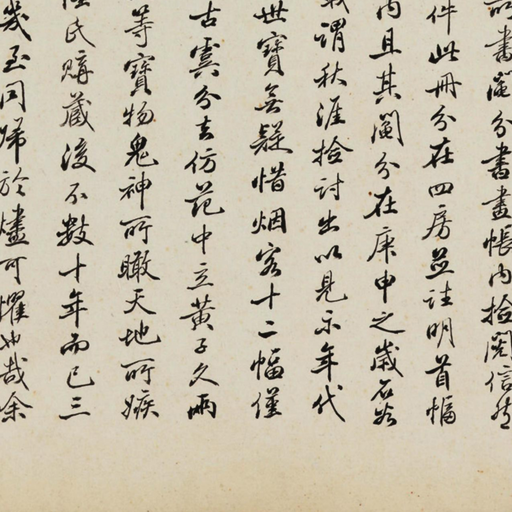 書闔分書畫帳內撿閱信
件此冊分在四房並註明首幅
內且其闔分在庚申之歲石谷
謂秋涯撿討出以見示年代
世寶無疑惜烟客十二幅僅
古雲分去仿范中立黃子久兩
等寶物鬼神所瞰天地所嫉
氏購藏後不數十年而已三
幾至同歸於燼可懼也哉余